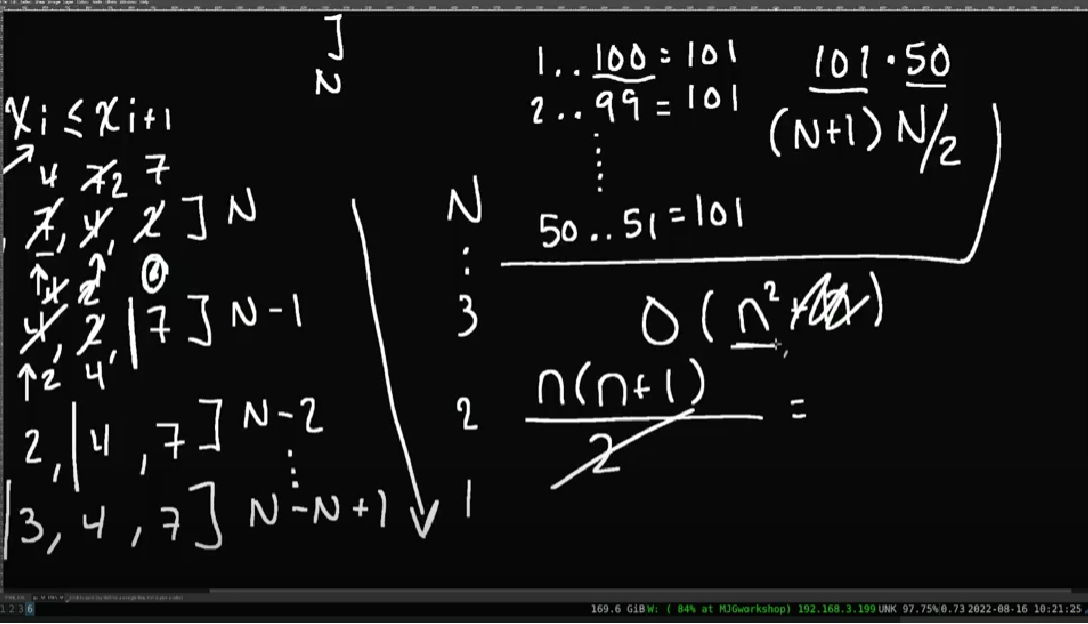 ]
N
Xi ≤ Xi+1
4 2 7
7, 4, 2 ] N
4 2
4, 2, | 7 ] N-1
2 4
2, | 4, 7 ] N-2
⋮
| 3, 4, 7 ] N-N+1
N
⋮
3
2
1
1..100=101
2..99=101
⋮
50..51=101
101·50
(N+1) N/2
O(n²+)
n(n+1)
2
=
1 2 3 6
169.6 GiB W: ( 84% at MJGworkshop) 192.168.3.199 UNK 97.75% 0.73 2022-08-16 10:21:25